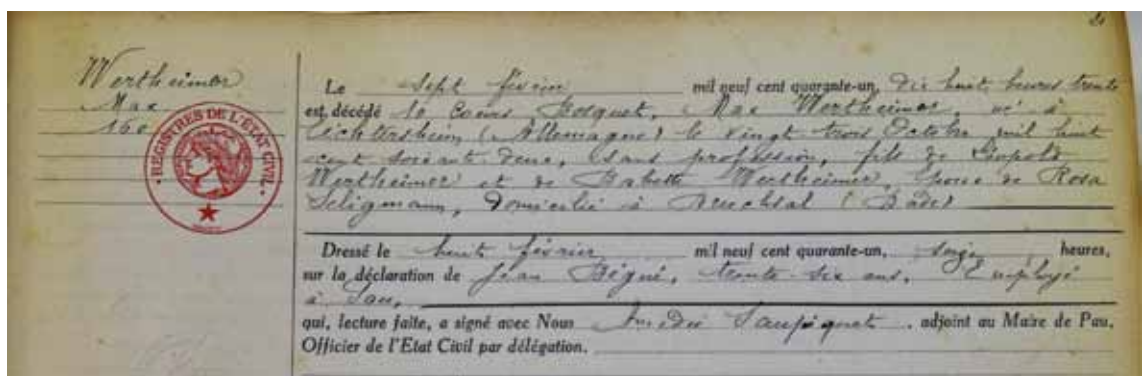 Wertheimer
Max
160
REGISTRES DE L'ETAT CIVIL
Le sept février mil neuf cent quarante-un, dix huit heures trente
est décédé 10 Cours Bosquet, Max Wertheimer, né à
Eichtersheim (Allemagne) le vingt trois Octobre mil huit
cent soixante deux, sans profession, fils de Léopold
Wertheimer et de Babette Wertheimer, époux de Rosa
Seligmann, domicilié à Bruchsal (Bade)
Dressé le huit février mil neuf cent quarante-un, seize heures,
sur la déclaration de Jean Bégué, trente six ans, Employé
à Pau,
qui, lecture faite, a signé avec Nous , adjoint au Maire de Pau,
Officier de l'Etat Civil par délégation.